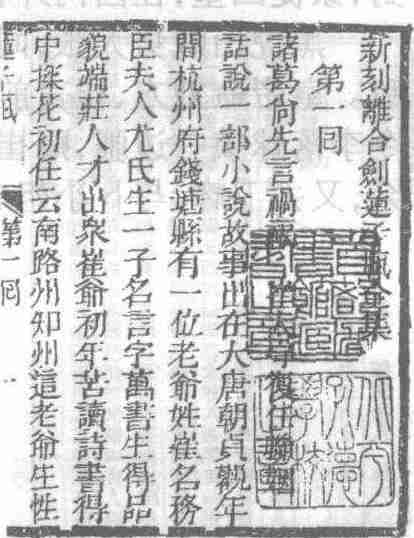 新刻離合劍蓮子瓶全集
第一回
諸葛尚先言禍 崔 守復任
話說一部小說故事出在大唐朝貞觀年
間杭州府錢塘縣有一位老爺姓崔名務
臣夫人尤氏生一子名言字萬書生得品
貌端莊人才出衆崔爺初年苦讀詩書得
中探花初任云南路州知州這老爺生性
蓮子瓶
第一回
一